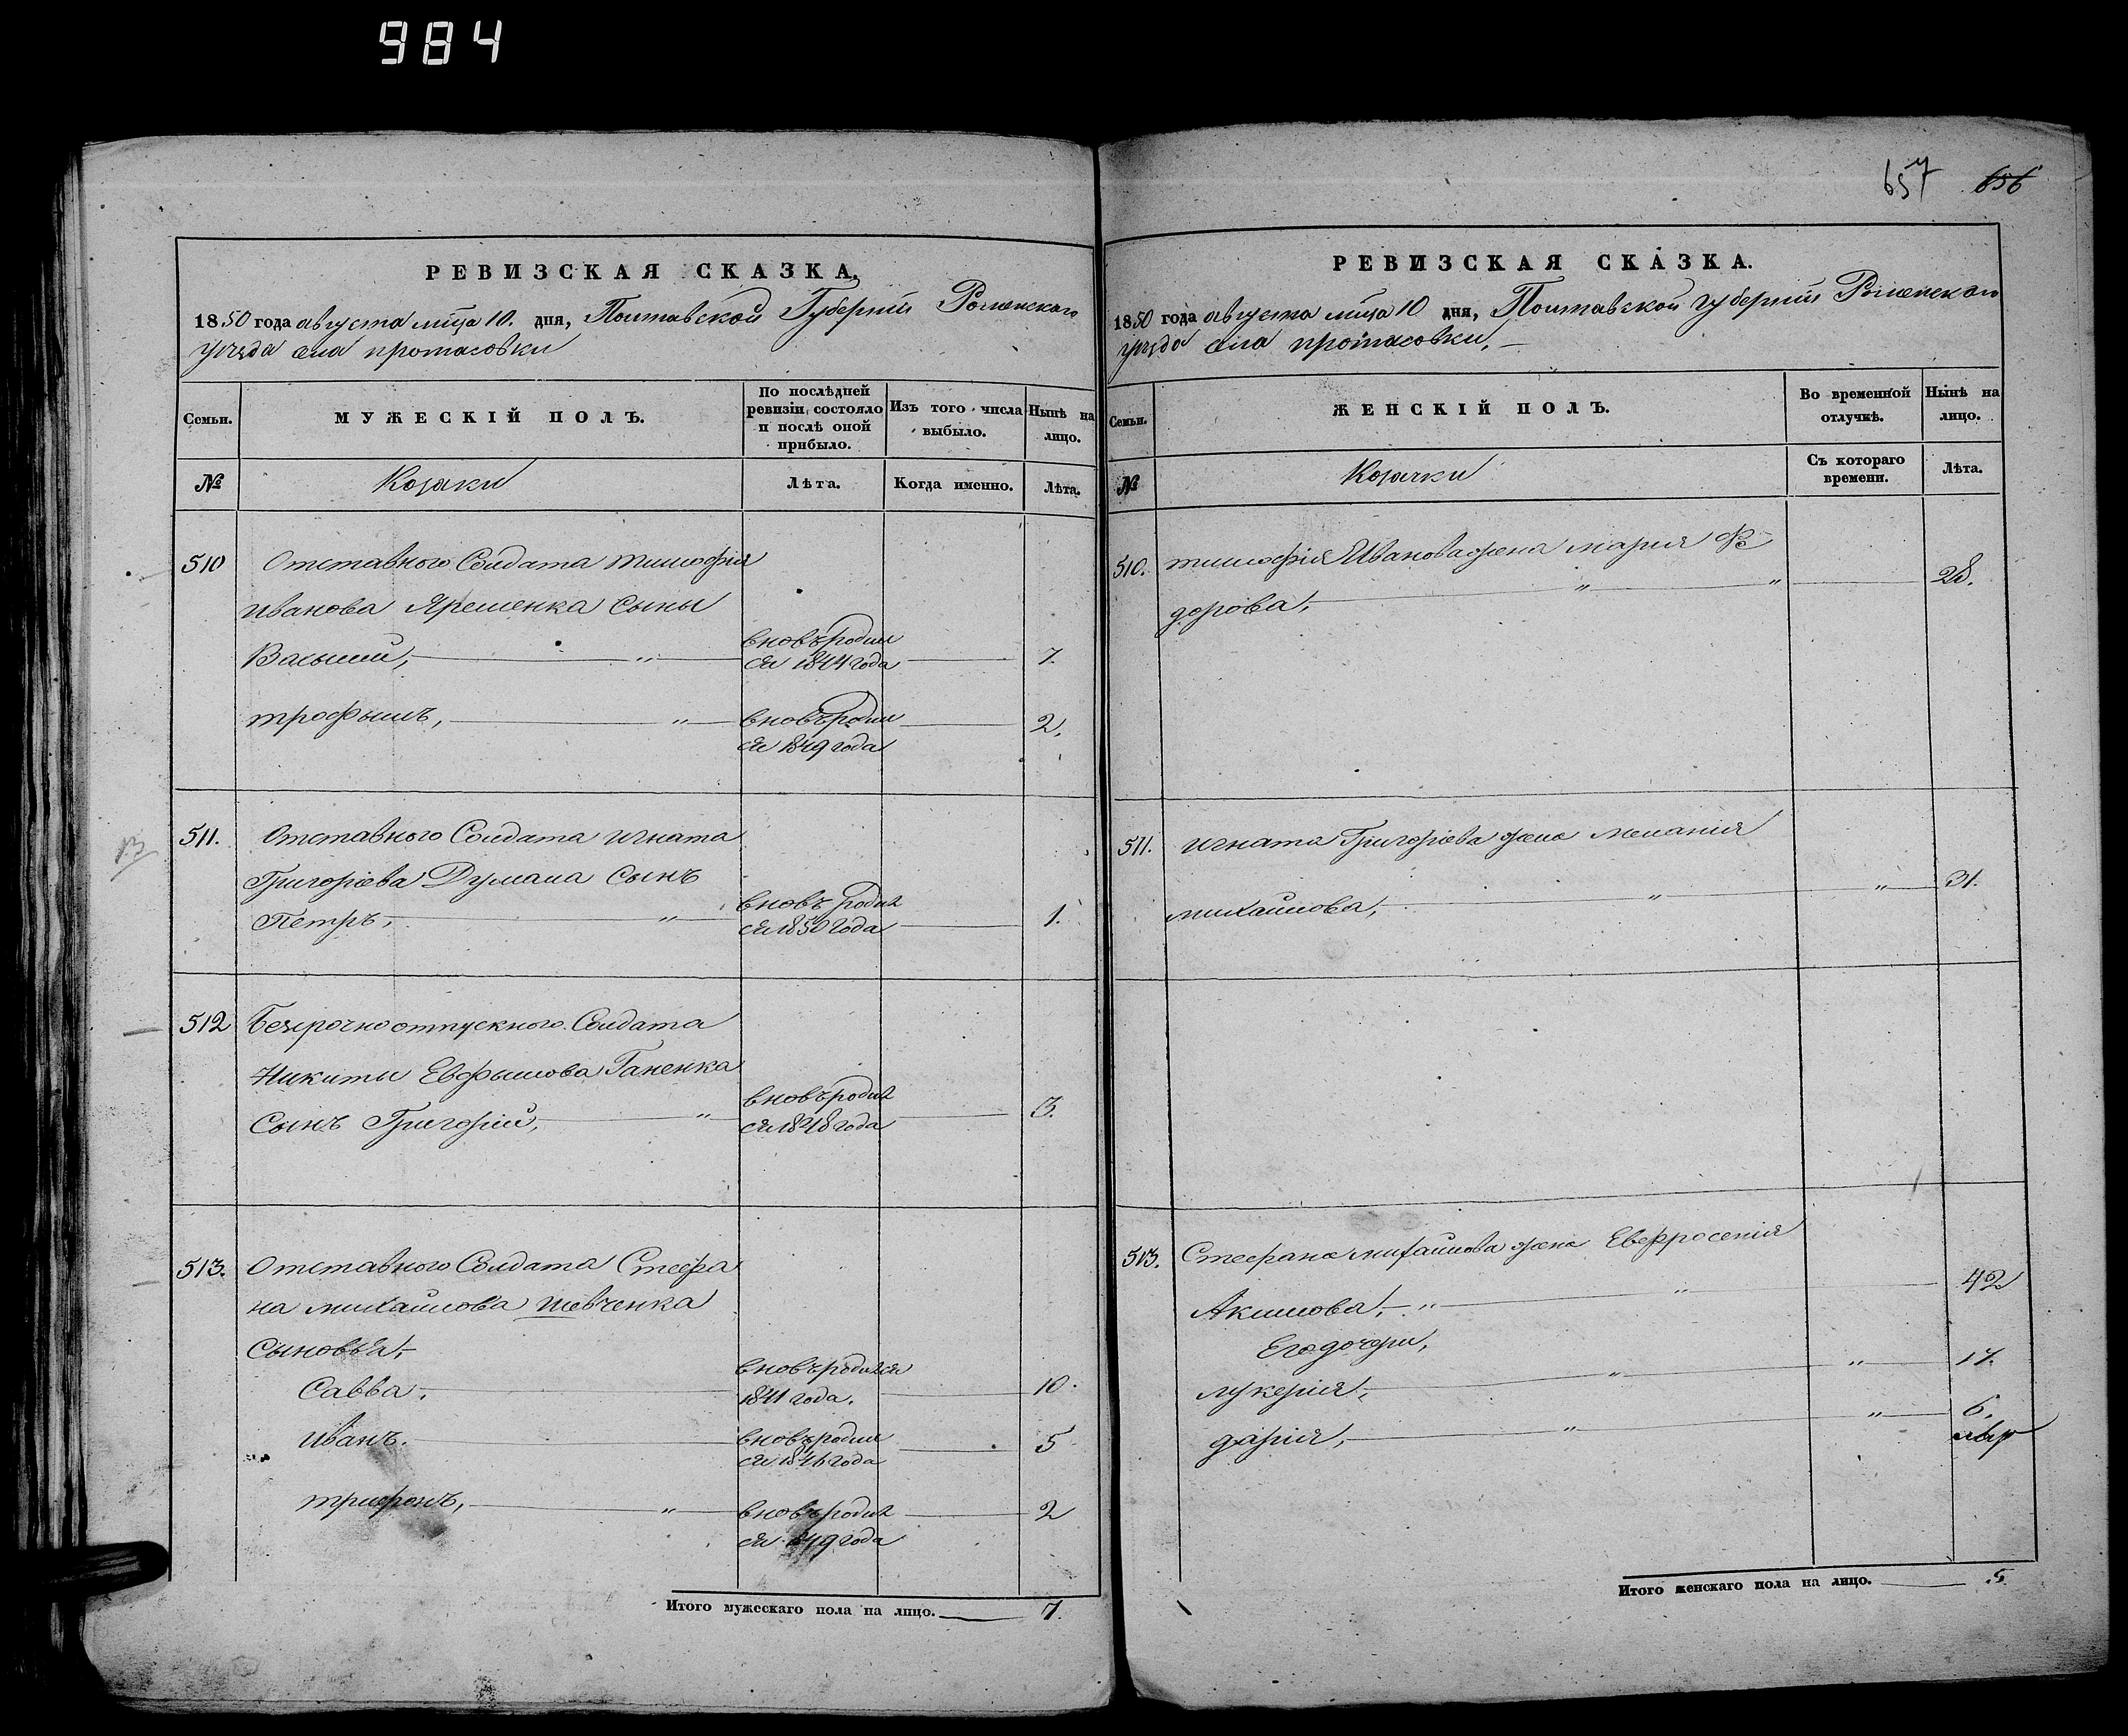 984
РЕВИЗСКАЯ СКАЗКА,
1850 года августа мца 10. дня, Полтавской Губернии Роменского
уезда села протасовки
Семьи.
МУЖЕСКІЙ ПОЛЪ.
По послѣдней
ревизіи состояло
и послѣ оной
прибыло.
Изъ того числа
выбыло.
Нынѣ на
лицо.
№
Козаки
Лѣта.
Когда именно.
Лѣта.
510 Отставного Солдата тимофія
иванова Яременка Сыны
Васылій, " вновь родил
ся 1844 года 7.
трофымъ, " вновь родил
ся 1849 года 2.
511. Отставного Солдата игната
Григоріева Думала Сынъ
Петръ, " вновь родил
ся 1850 года 1.
512 Безсрочно отпускного Солдата
Никиты Евфымова Ганенка
Сынъ Григорій, " вновь родил
ся 1848 года 3.
513. Отставного Солдата Стефа
на михайлова шевченка
Сыновья,
Савва. вновь родился
1841 года. 10.
иванъ. вновь родил
ся 1846 года 5
трифонъ, " вновь родил
ся 1849 года 2
Итого мужескаго пола на лицо. 7.
657 656
РЕВИЗСКАЯ СКАЗКА.
1850 года августа мца 10 дня, Полтавской губерніи Роменского
уезда села протасовки.
Семьи.
ЖЕНСКІЙ ПОЛЪ.
Во временной
отлучкѣ.
Нынѣ на
лицо.
№
Козачки
Съ котораго
времени.
Лѣта.
510. тимофія Иванова жена марія Фе
дорова, " " 28.
511. игната Григоріева жена меланія
михайлова, " " 31.
513. Стефана михайлова жена Евфросенія
Акимова, " " 42
Его дочери,
лукерія, " " 17.
дарія, " " 6.
Итого женскаго пола на лицо. 5.